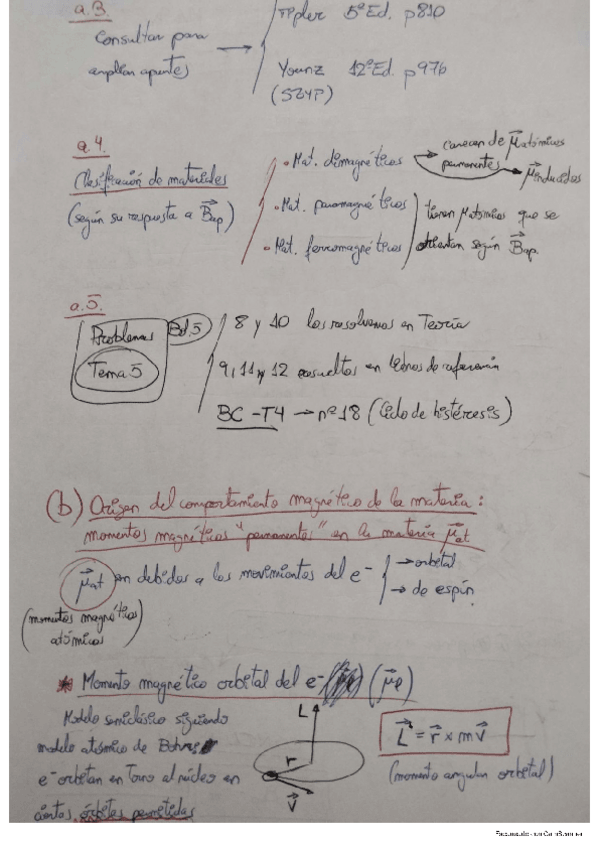 a.3.
Consultar para
ampliar apuntes
Tipler 5ªEd. p810
Young 12ªEd. p976
(SZYF)
a.4.
Clasificación de materiales
(según su respuesta a B ap)
• Mat. dimagnéticos
carecen de μ atómicos
permanentes
μ inducidos
• Mat. paramagnéticos
• Mat. ferromagnéticos
tienen μ atómicos que se
orientan según B ap.
a.5.
Problemas Bol.5
Tema 5
8 y 10 los resolvemos en Teoría
9, 11 y 12 resueltos en libros de referencia
BC-T4 → nº18 (Ciclo de histéresis)
(b) Origen del comportamiento magnético de la materia:
momentos magnéticos "permanentes" en la materia μ at
μ at son debidos a los movimientos del e⁻
→ orbital
→ de espín.
(momentos magnéticos
atómicos)
* Momento magnético orbital del e⁻ (μℓ)
Modelo semiclásico siguiendo
modelo atómico de Bohr:
e⁻ orbitan en torno al núcleo en
ciertas órbitas permitidas
L
r
v
L = r x m v
(momento angular orbital)
Escaneado con CamScanner